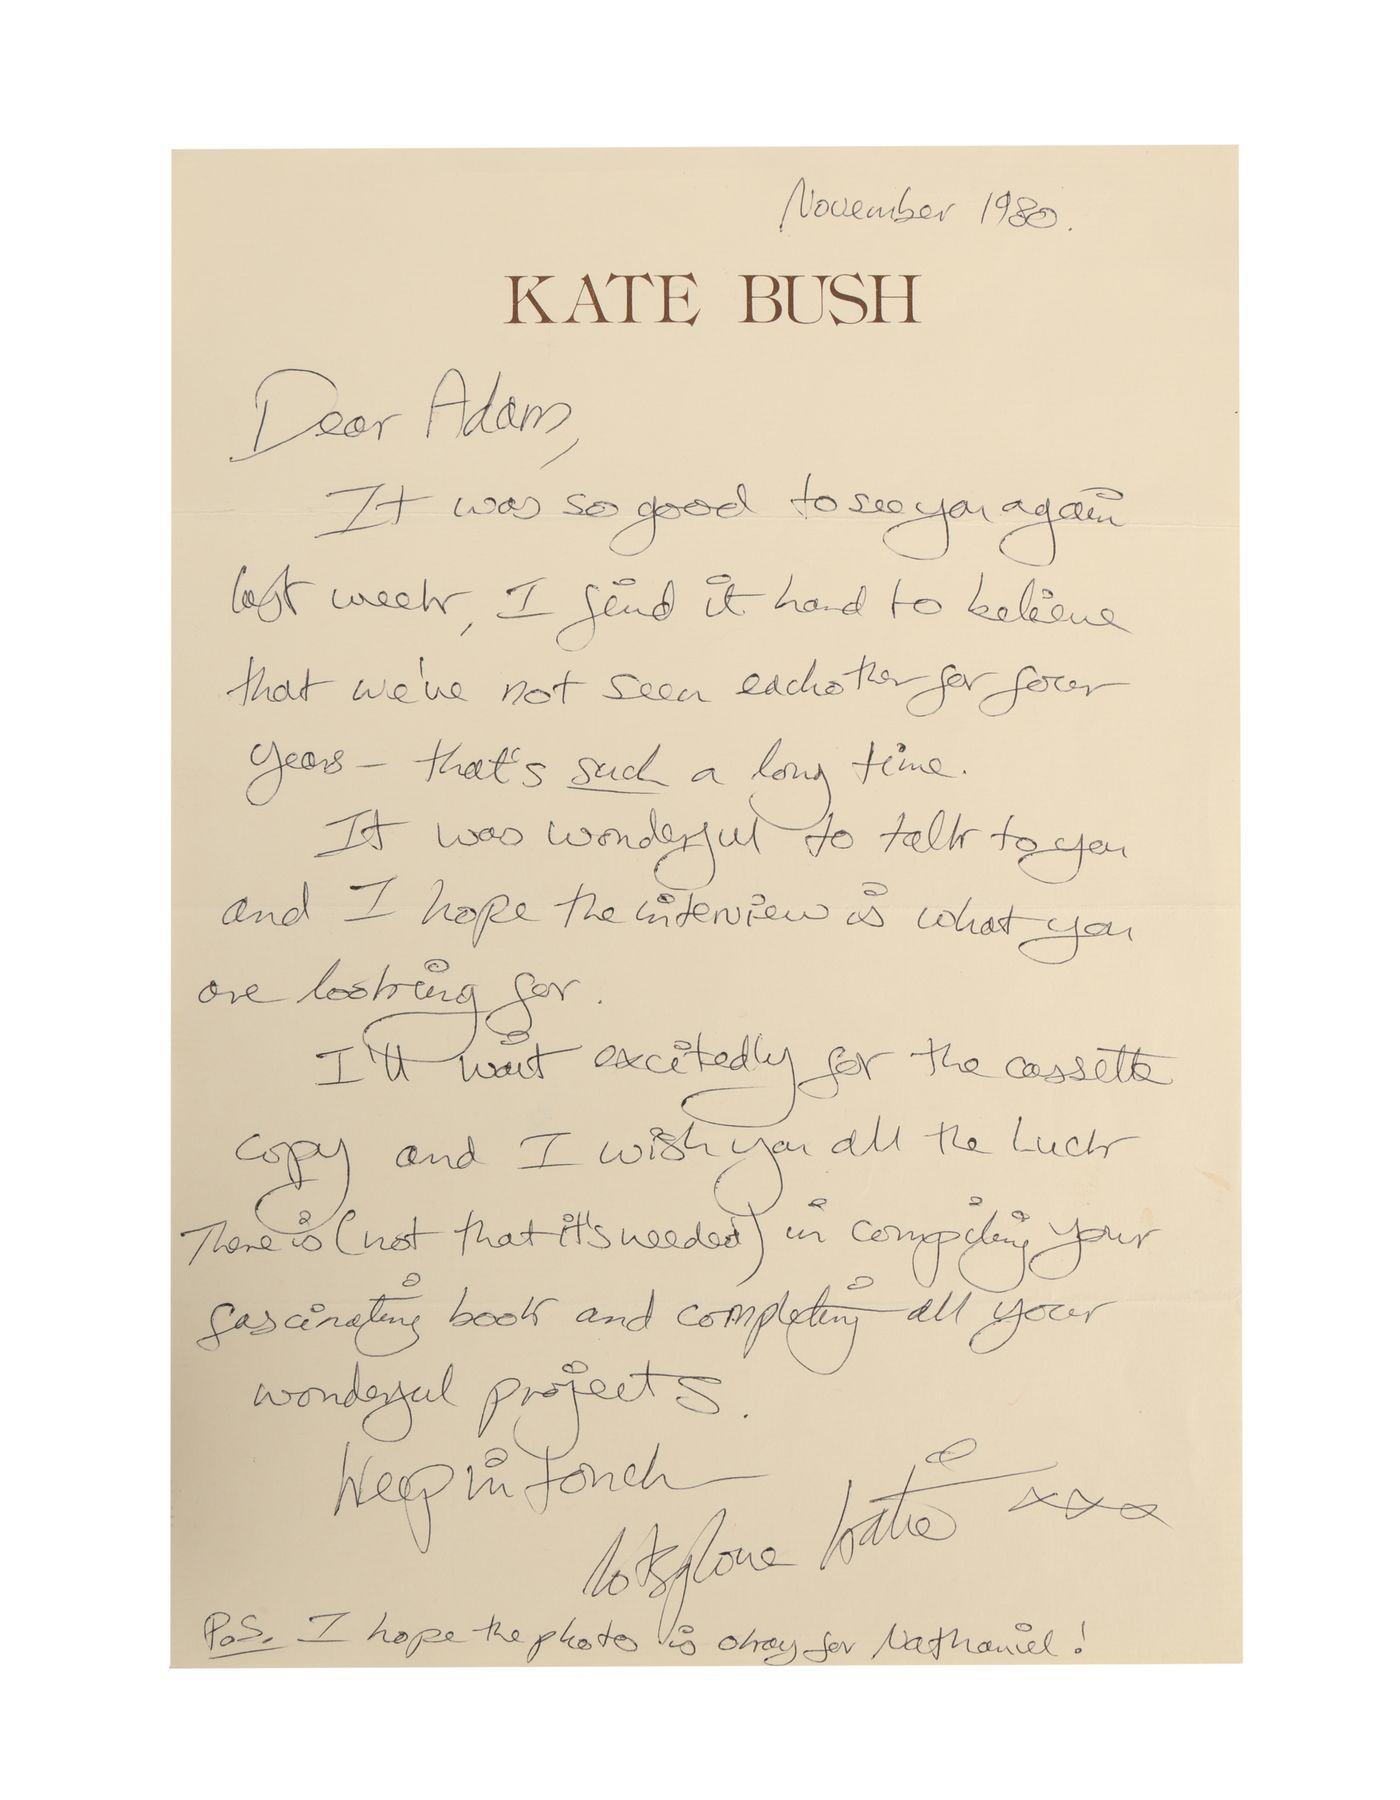 November 1980.
KATE BUSH
Dear Adam,
It was so good to see you again
last week, I find it hard to believe
that we've not seen eachother for four
years – that's such a long time.
It was wonderful to talk to you
and I hope the interview is what you
are looking for.
I'll wait excitedly for the cassette
copy and I wish you all the Luck
There is (not that it's needed) in compiling your
fascinating book and completing all your
wonderful projects.
Keep in touch
lots of love Kate xxx
P.S. I hope the photo is okay for Nathaniel!